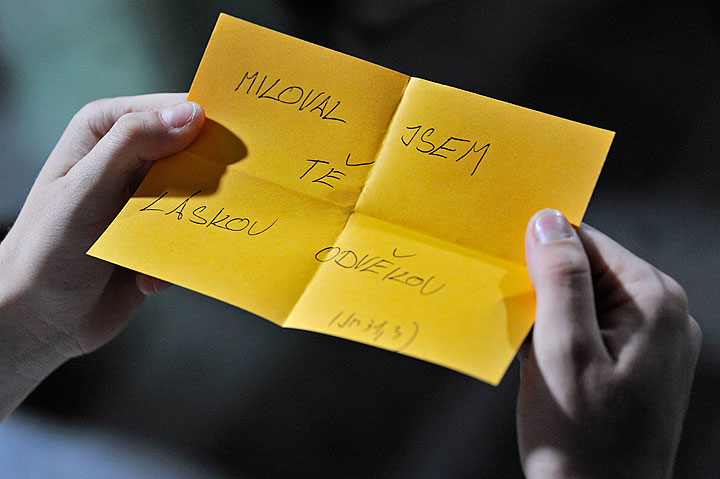 MILOVAL JSEM
TĚ
LÁSKOU ODVĚKOU
(Jr 31,3)